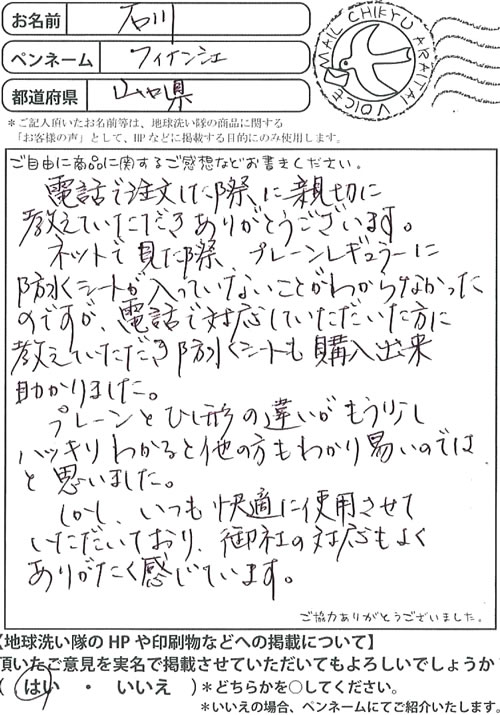 お名前 石川
MAIL CHIKYU ARAITAI VOICE
ペンネーム フィナンシェ
都道府県 山口県
＊ご記入頂いたお名前等は、地球洗い隊の商品に関する
「お客様の声」として、HPなどに掲載する目的にのみ使用します。
ご自由に商品に関するご感想などお書きください。
電話で注文した際に親切に
教えていただきありがとうございます。
ネットで見た際 プレーンレギュラーに
防水シートが入っていないことがわからなかった
のですが、電話で対応していただいた方に
教えていただき防水シートも購入出来
助かりました。
プレーンとひし形の違いがもう少し
ハッキリわかると他の方もわかり易いのでは
と思いました。
しかし、いつも快適に使用させて
いただいており、御社の対応もよく
ありがたく感じています。
ご協力ありがとうございました。
【地球洗い隊のHPや印刷物などへの掲載について】
頂いたご意見を実名で掲載させていただいてもよろしいでしょうか
( はい ・ いいえ )＊どちらかを○してください。
＊いいえの場合、ペンネームにてご紹介いたします。